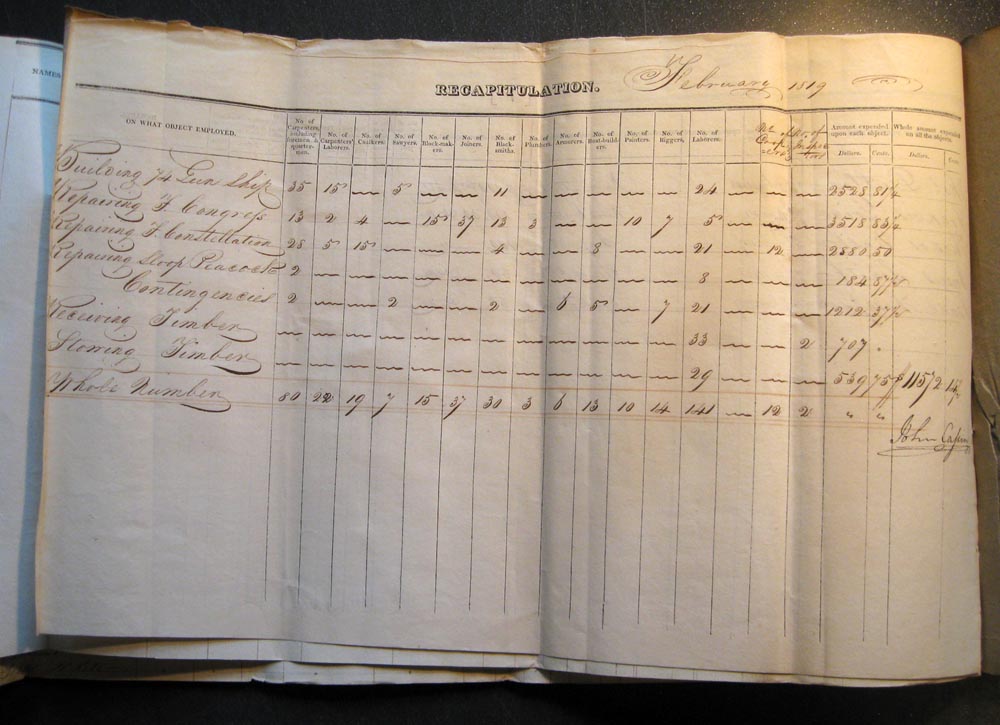 NAMES
RECAPITULATION. February 1819
ON WHAT OBJECT EMPLOYED. No. of Carpenters, including foremen & quarter-men. No. of Carpenters' Laborers. No. of Caulkers. No. of Sawyers. No. of Block-makers. No. of Joiners. No. of Black-smiths. No. of Plumbers. No. of Armorers. No. of Boat-builders. No. of Painters. No. of Riggers. No. of Laborers. No. of No. of Amount expended upon each object. Whole amount expended on all the objects.
Dollars. Cents. Dollars. Cents.
Building 74 Gun Ship 35 15 — 5 — — 11 — — — — — 24 — — — 2528 81¼
Repairing F. Congress 13 2 4 — 15 37 13 3 — — 10 7 5 — — — 3518 83¾
Repairing F. Constellation 28 5 15 — — — 4 — — 8 — — 21 — 12 — 2580 50
Repairing Sloop Peacock 2 — — — — — — — — — — — 8 — — — 184 87½
Contingencies 2 — — 2 — — 2 — 6 5 — 7 21 — — — 1212 37½
Receiving Timber — — — — — — — — — — — — 33 — — 2 707 "
Storing Timber — — — — — — — — — — — — 29 — — — 539 75 11572 14½
Whole Number 80 22 19 7 15 37 30 3 6 13 10 14 141 — 12 2 " "
John